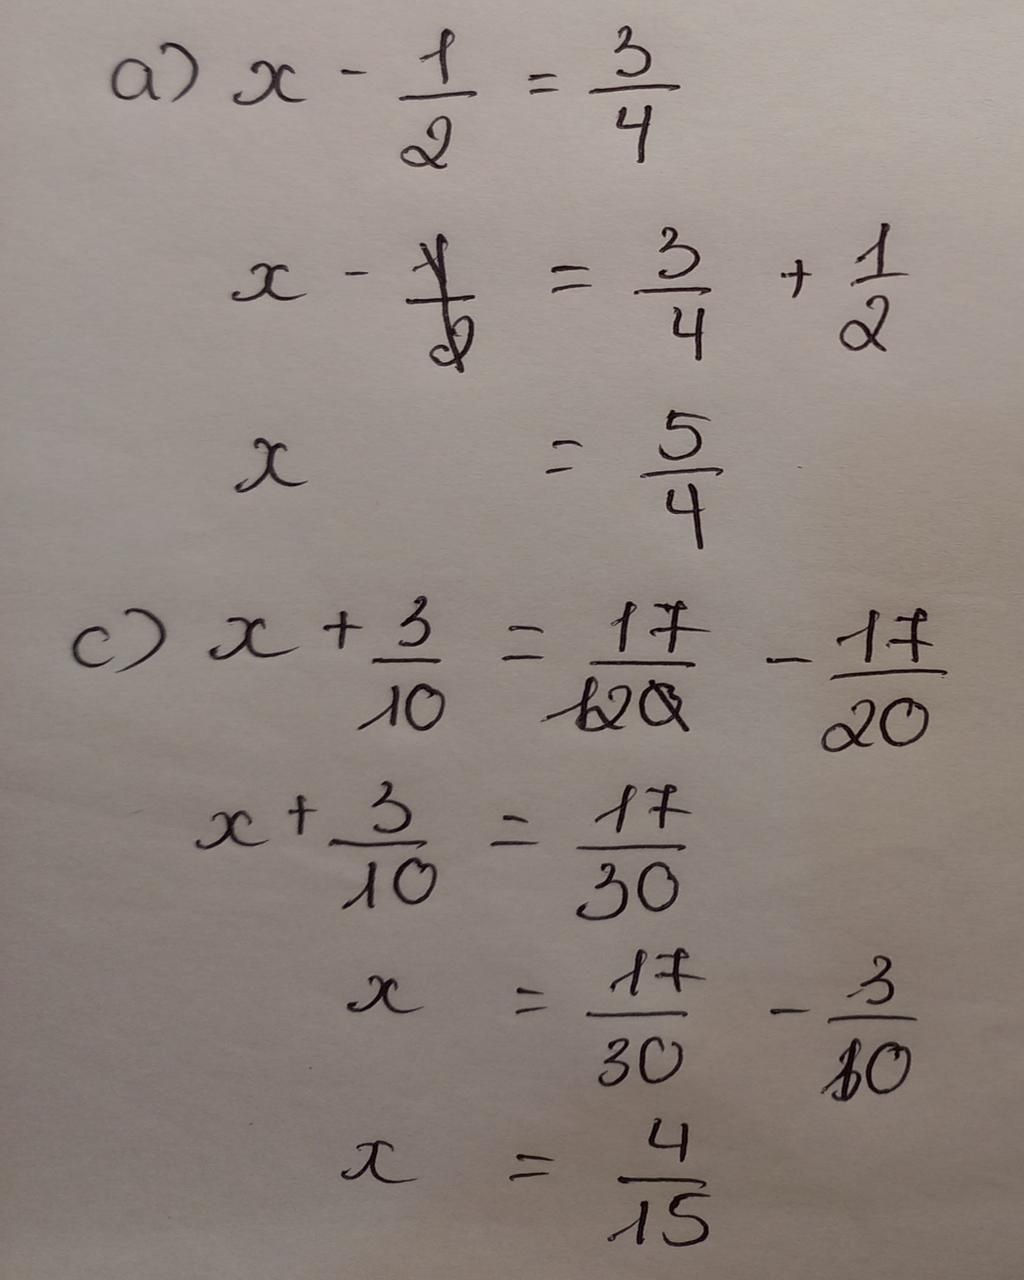 a) x - 1/2 = 3/4
x - 1/2 = 3/4 + 1/2
x = 5/4
c) x + 3/10 = 17/12 - 17/20
x + 3/10 = 17/30
x = 17/30 - 3/10
x = 4/15